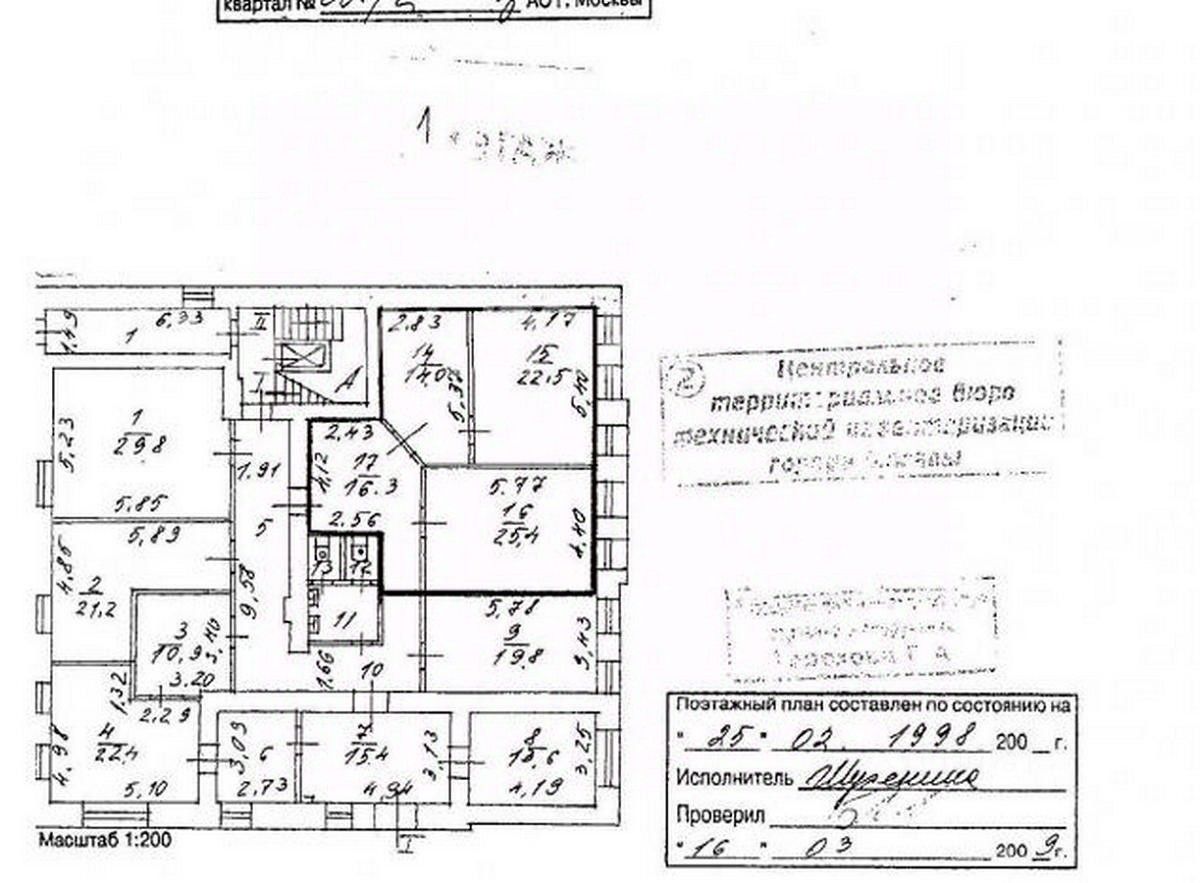 квартал № АО г. Москвы
1 этаж
1,49
1
6,33
II
I
А
2,83
14
14,0
5,37
4,17
15
22,5
5,40
1
29,8
5,23
5,85
1,91
5
9,58
2,43
4,12
17
16.3
2.56
5.77
16
25,4
4,40
5,89
4,85
2
21,2
3
10,9
3,40
3.20
13
12
11
1,66
10
5,78
9
19,8
3,43
1,32
2,29
4
22,4
4,98
5,10
3,09
6
2,73
7
15,4
3,13
4,94
8
13,6
3,25
4,19
I
Масштаб 1:200
2
Центральное
территориальное бюро
технической инвентаризации
города Москвы
Поэтажный план составлен по состоянию на
" 25 " 02. 1998 200 __ г.
Исполнитель
Проверил
" 16 " 03 200 9 г.